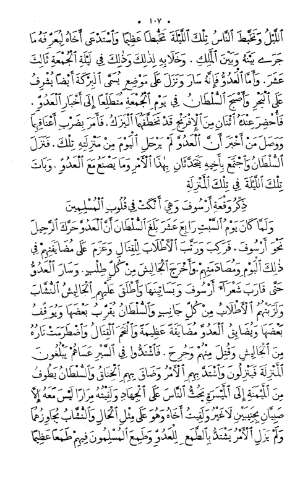 ١٠٧
اللَّيْلُ وَتَخَبَّطَ النَّاسُ تِلْكَ اللَّيْلَةَ تَخْبَاطًا عَظِيمًا وَاسْتَدْعَى أَخَاهُ لِيُعَرِّفَهُ مَا
جَرَى بَيْنَهُ وَبَيْنَ الْمَلِكِ. وَخَلَا بِهِ لِذَلِكَ وَذَلِكَ فِي لَيْلَةِ الْجُمُعَةِ ثَالِثَ
عَشَرَ. وَأَمَّا الْعَدُوُّ فَإِنَّهُ سَارَ وَنَزَلَ عَلَى مَوْضِعٍ يُسَمَّى الْبِرْكَةَ أَيْضًا يُشْرِفُ
عَلَى الْبَحْرِ وَأَصْبَحَ السُّلْطَانُ فِي يَوْمِ الْجُمُعَةِ مُتَطَلِّعًا إِلَى أَخْبَارِ الْعَدُوِّ.
فَأُحْضِرَ عِنْدَهُ اثْنَانِ مِنَ الْإِفْرَنْجِ قَدْ تَخَطَّفَهُمَا الْيَزَكُ. فَأَمَرَ بِضَرْبِ أَعْنَاقِهِمَا
وَوَصَلَ مَنْ أَخْبَرَ أَنَّ الْعَدُوَّ لَمْ يَرْحَلِ الْيَوْمَ مِنْ مَنْزِلَتِهِ تِلْكَ. فَنَزَلَ
السُّلْطَانُ وَاجْتَمَعَ بِأَخِيهِ يَتَحَدَّثَانِ بِهَذَا الْأَمْرِ وَمَا يَصْنَعُ مَعَ الْعَدُوِّ. وَبَاتَ
تِلْكَ اللَّيْلَةَ فِي تِلْكَ الْمَنْزِلَةِ
ذِكْرُ وَقْعَةِ أَرْسُوفَ وَهِيَ أَنْكَتْ فِي قُلُوبِ الْمُسْلِمِينَ
وَلَمَّا كَانَ يَوْمُ السَّبْتِ رَابِعَ عَشَرَ بَلَغَ السُّلْطَانَ أَنَّ الْعَدُوَّ حَرَّكَ الرَّحِيلَ
نَحْوَ أَرْسُوفَ. فَرَكِبَ وَرَتَّبَ الْأَطْلَابَ لِلْقِتَالِ وَعَزَمَ عَلَى مُضَايَقَتِهِمْ فِي
ذَلِكَ الْيَوْمِ وَمُصَادَمَتِهِمْ وَأَخْرَجَ الْجَالِيشَ مِنْ كُلِّ طَلَبٍ. وَسَارَ الْعَدُوُّ
حَتَّى قَارَبَ شَعْرَاءَ أَرْسُوفَ وَبَسَاتِينَهَا وَأَطْلَقَ عَلَيْهِمِ الْجَالِيشُ النُّشَّابَ
وَلَزَّتْهُمُ الْأَطْلَابُ مِنْ كُلِّ جَانِبٍ وَالسُّلْطَانُ يُقَرِّبُ بَعْضَهَا وَيُوقِفُ
بَعْضَهَا وَيُضَايِقُ الْعَدُوَّ مُضَايَقَةً عَظِيمَةً وَالْتَحَمَ الْقِتَالُ وَاضْطَرَمَتْ نَارُهُ
مِنَ الْجَالِيشِ وَقُتِلَ مِنْهُمْ وَجُرِحَ. فَاشْتَدُّوا فِي السَّيْرِ عَسَاهُمْ يَبْلُغُونَ
الْمَنْزِلَةَ فَيَنْزِلُونَ وَاشْتَدَّ بِهِمُ الْأَمْرُ وَضَاقَ بِهِمِ الْخِنَاقُ وَالسُّلْطَانُ يَطُوفُ
مِنَ الْمَيْمَنَةِ إِلَى الْمَيْسَرَةِ يَحُثُّ النَّاسَ عَلَى الْجِهَادِ وَلَقِيتُهُ مِرَارًا لَيْسَ مَعَهُ إِلَّا
صَبِيَّانِ بِجَنِيبَيْنِ لَا غَيْرُ وَلَقِيتُ أَخَاهُ وَهُوَ عَلَى مِثْلِ الْحَالِ وَالنُّشَّابُ يَتَجَاوَزُهُمَا
وَلَمْ يَزَلِ الْأَمْرُ يَشْتَدُّ بِالطَّمَعِ لِلْعَدُوِّ وَطَمِعَ الْمُسْلِمُونَ فِيهِمْ طَمَعًا عَظِيمًا